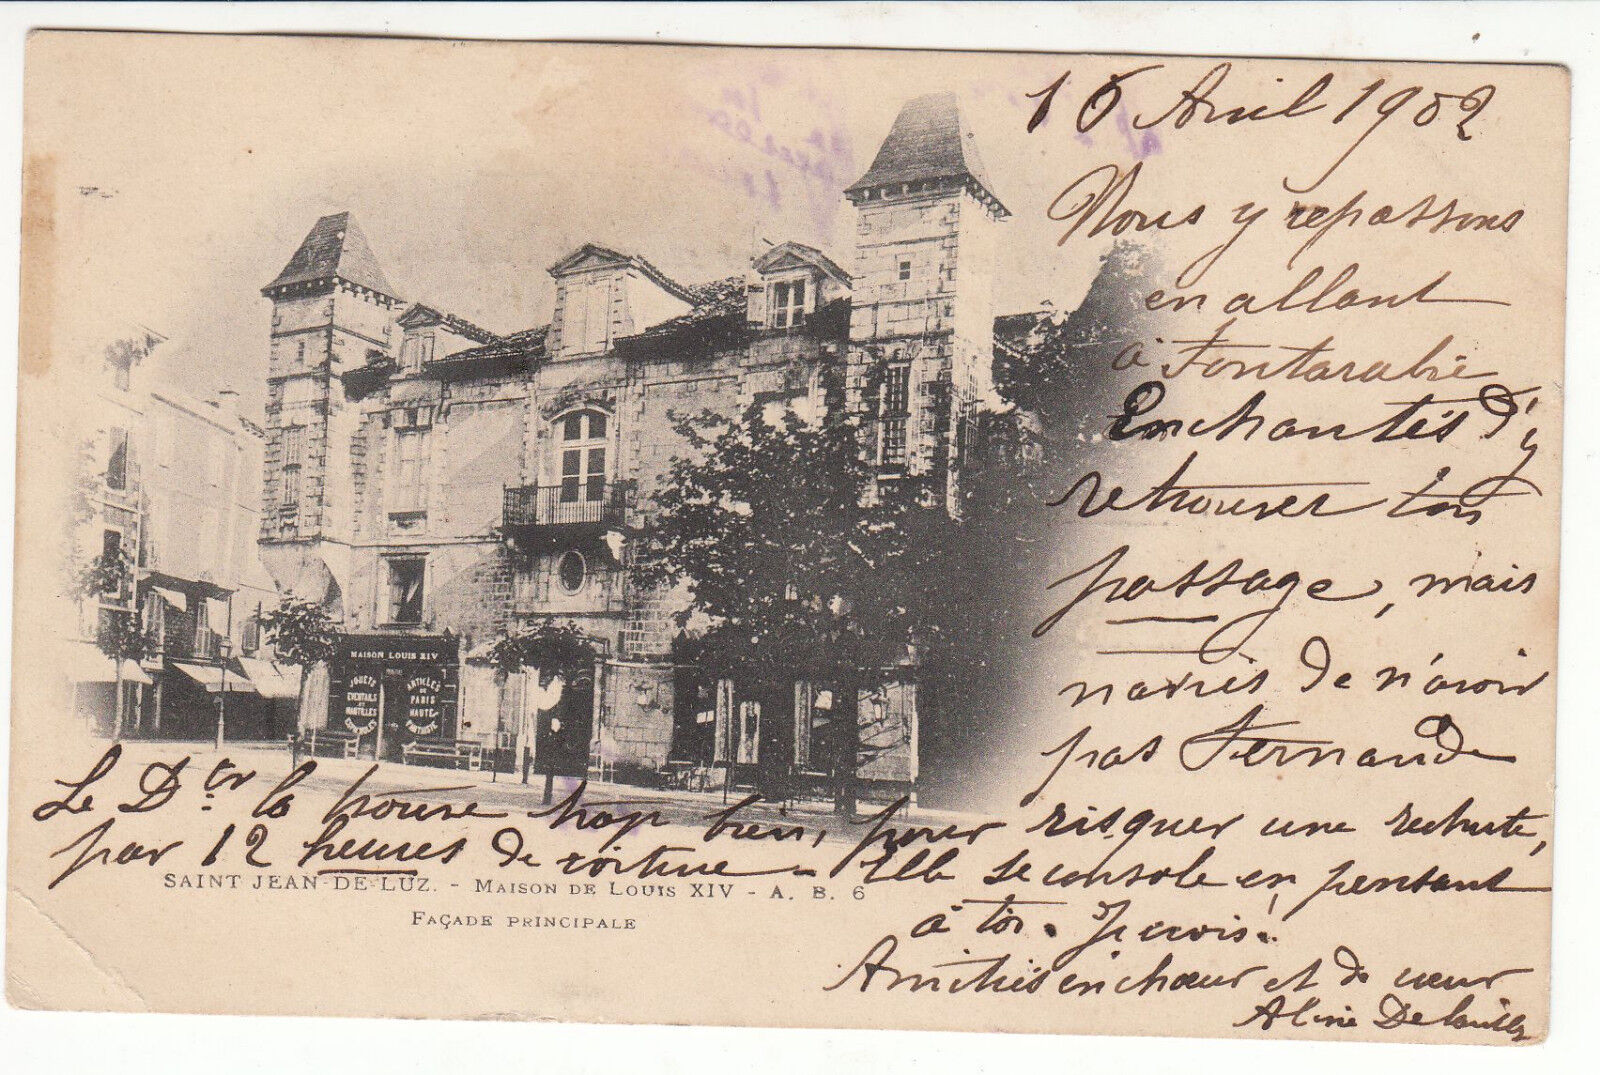 Avril 1902
Nous y repassons
en allant
à Fontarabie
Enchantés d'y
retrouver ton
passage, mais
navrés de n'avoir
pas Fernande
Le Dr. la trouve trop bien, pour risquer une rechute,
par 12 heures de voiture - Elle se console en pensant
à toi. Je crois.
Amitiés en chœur et de cœur
Aline
MAISON LOUIS XIV
JOUETS
EVENTAILS
ET
MANTILLES
ARTICLES
DE
PARIS
HAUTE
SAINT JEAN-DE-LUZ. - MAISON DE LOUIS XIV - A. B. 6
FAÇADE PRINCIPALE